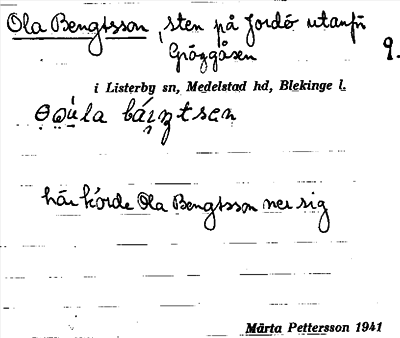 Ola Bengtsson, sten på Jordö utanför
Gröggåsen 9.
i Listerby sn, Medelstad hd, Blekinge l.
här körde Ola Bengtsson ner sig
Märta Pettersson 1941